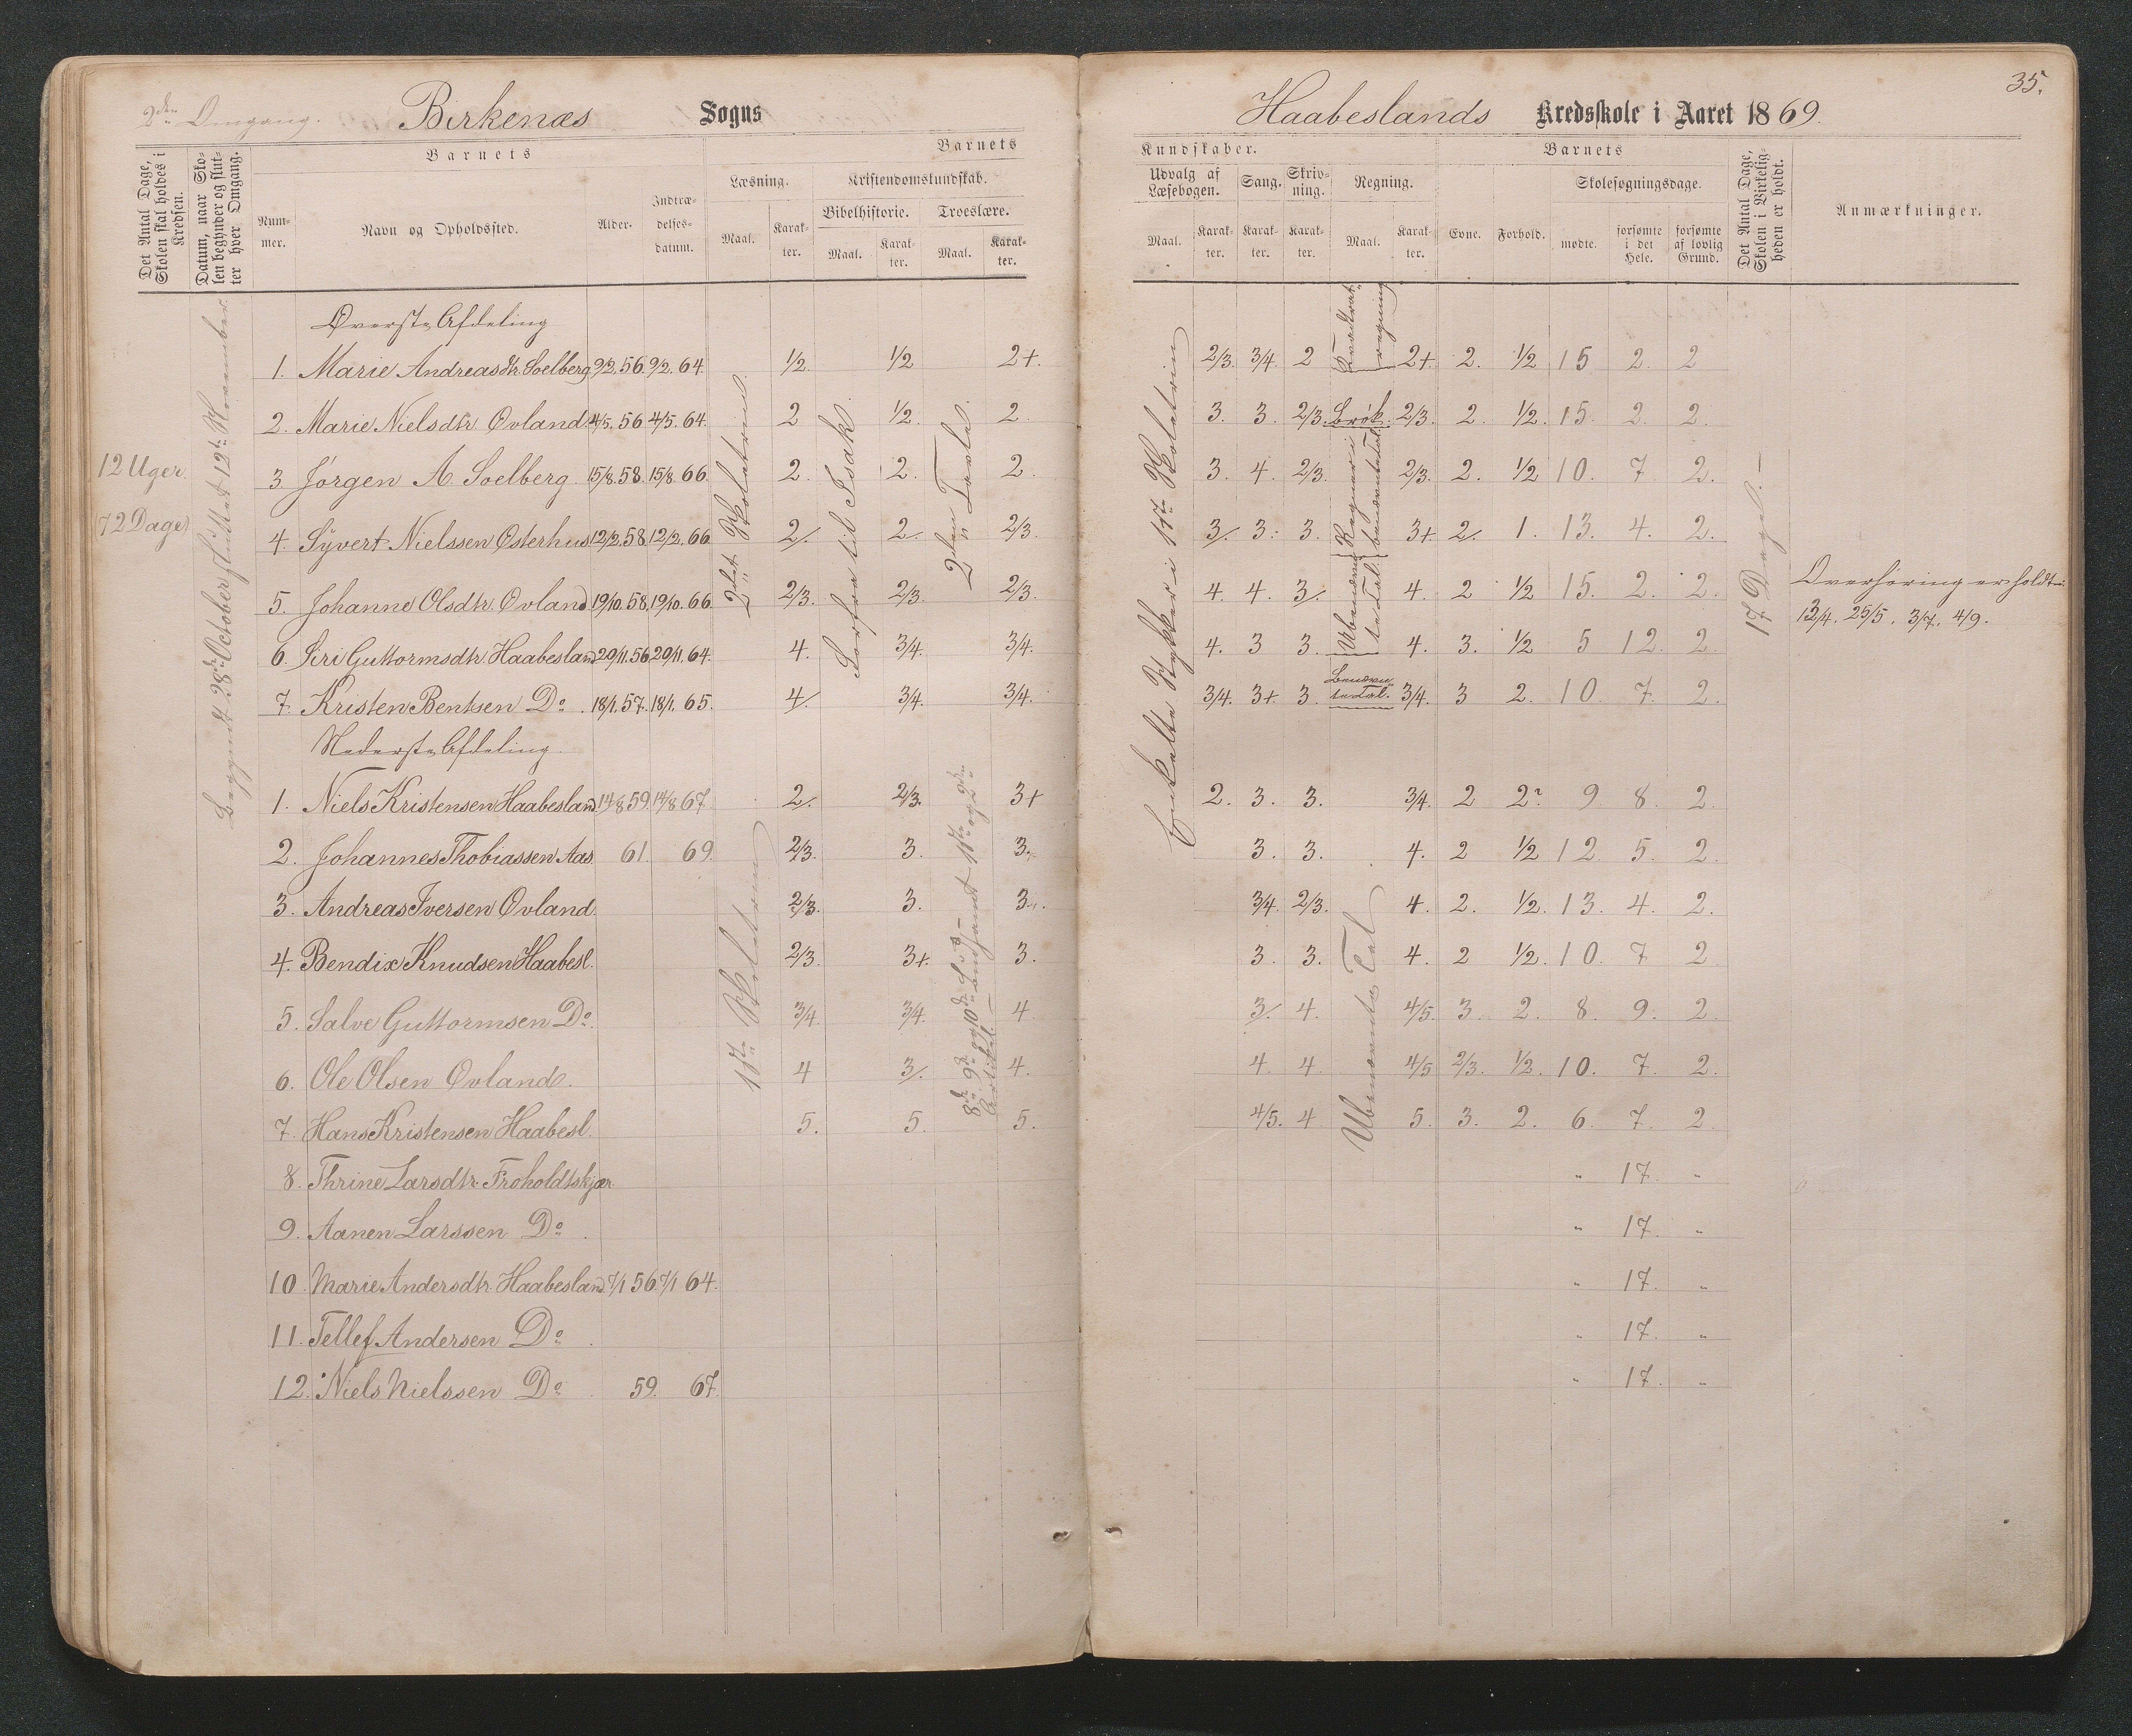 2den Omgang. Birkenæs Sogns
Haabeslands Kredsskole i Aaret 1869.
35.
Det Antal Dage, Skolen skal holdes i Kredsen.
Datum, naar Skolen begynder og slutter hver Omgang.
Barnets
Nummer.
Navn og Opholdssted.
Alder.
Indtrædelsesdatum.
Barnets
Læsning.
Maal.
Karakter.
Kristendomskundskab.
Bibelhistorie.
Maal.
Karakter.
Troeslære.
Maal.
Karakter.
Kundskaber.
Udvalg af Læsebogen.
Maal.
Karakter.
Sang.
Karakter.
Skrivning.
Karakter.
Regning.
Maal.
Karakter.
Barnets
Evne.
Forhold.
Skolesøgningsdage.
mødte.
forsømte i det Hele.
forsømte af lovlig Grund.
Det Antal Dage, Skolen i Virkeligheden er holdt.
Anmærkninger.
12 Uger.
(72 Dage)
Begyndt 28de October sluttet 12te November.
Øverste Afdeling
1. Marie Andreasdtr. Soelberg 9/2. 56. 9/2. 64. 1/2. 1/2 2+. 2/3. 3/4. 2 2+. 2. 1/2 15 2. 2
2. Marie Nielsdtr Ovland 4/5. 56 4/5. 64. 2 1/2. 2. 3. 3. 2/3. Brøk. 2/3. 2. 1/2. 15. 2. 2.
3 Jørgen A. Soelberg. 15/8. 58. 15/8. 66. 2. 2. 2. 3. 4. 2/3. 2/3. 2. 1/2 10. 7 2.
4. Syvert Nielssen Østerhus 12/2. 58. 12/2. 66. 2/. 2/. 2/3. 3/. 3. 3. 3+ 2/. 1. 13. 4. 2.
5. Johanne Olsdtr. Ovland 19/10. 58. 19/10. 66. 2/3. 2/3. 2/3. 4. 4. 3/. 4. 2 1/2 15. 2. 2.
6. Siri Guttormsdtr Haabesland 29/11. 56 29/11. 64. 4. 3/4. 3/4. 4. 3 3. 4. 3. 1/2 5 12. 2.
7. Kristen Bentsen Do. 18/1. 57. 18/1. 65. 4/. 3/4. 3/4. 3/4. 3+. 3. 3/4. 3 2. 10. 7. 2.
2det Skoletrin.
Forfra til Isak
2den Tavle.
Enkelte Stykker i 1ste Skoletrin
Kvadratregning
Regner i benævnte Tal.
Ubenævnte Tal.
Benævnte Tal.
17 Dage.
Overhøring er holdt:
13/4. 25/5. 3/7. 4/9.
Nederste Afdeling
1. Niels Kristensen Haabesland 14/8 59. 14/8 67 2/. 2/3. 3+ 2. 3. 3. 3/4. 2 2. 9. 8. 2.
2. Johannes Thobiassen Aas. 61. 69. 2/3. 3. 3. 3. 3. 4. 2 1/2 12. 5. 2.
3. Andreas Iversen Ovland. 2/3. 3. 3. 3/4. 2/3. 4. 2. 1/2. 13. 4. 2.
4. Bendix Knudsen Haabesl. 2/3. 3+. 3. 3. 3. 4. 2 1/2. 10. 7 2.
5. Salve Guttormsen Do. 3/4. 3/4. 4 3/. 4. 4/5. 3. 2. 8. 9. 2.
6. Ole Olsen Ovland. 4 3/. 4. 4. 4 4/5 2/3. 1/2. 10. 7. 2.
7. Hans Kristensen Haabesl. 5. 5. 5. 4/5. 4 5. 3. 2. 6. 7. 2
8. Thrine Larsdtr. Froholdtskjær " 17. "
9. Aanen Larssen Do. " 17. "
10. Marie Andersdtr. Haabesland. 7/1 56. 7/1 64. " 17. "
11. Tellef Andersen Do. " 17. "
12. Niels Nielssen Do. 59. 67. " 17. "
1ste Skoletrin
8de 9de og 10de Bud samt 1ste og 2den Artikel.
Ubenævnte Tal